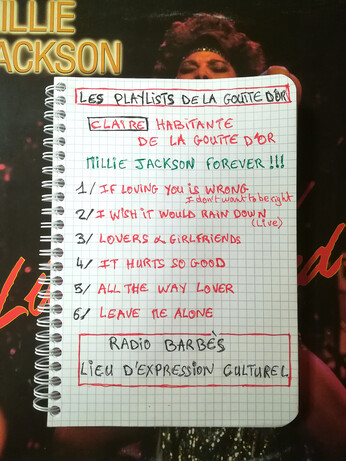 MILLIE
JACKSON
LES PLAYLISTS DE LA GOUTTE D'OR
CLAIRE HABITANTE
DE LA GOUTTE D'OR
MILLIE JACKSON FOREVER !!!
1/ IF LOVING YOU IS WRONG
I don't want to be right
2/ I WISH IT WOULD RAIN DOWN
(Live)
3/ LOVERS & GIRLFRIENDS
4/ IT HURTS SO GOOD
5/ ALL THE WAY LOVER
6/ LEAVE ME ALONE
RADIO BARBÈS
LIEU D'EXPRESSION CULTUREL